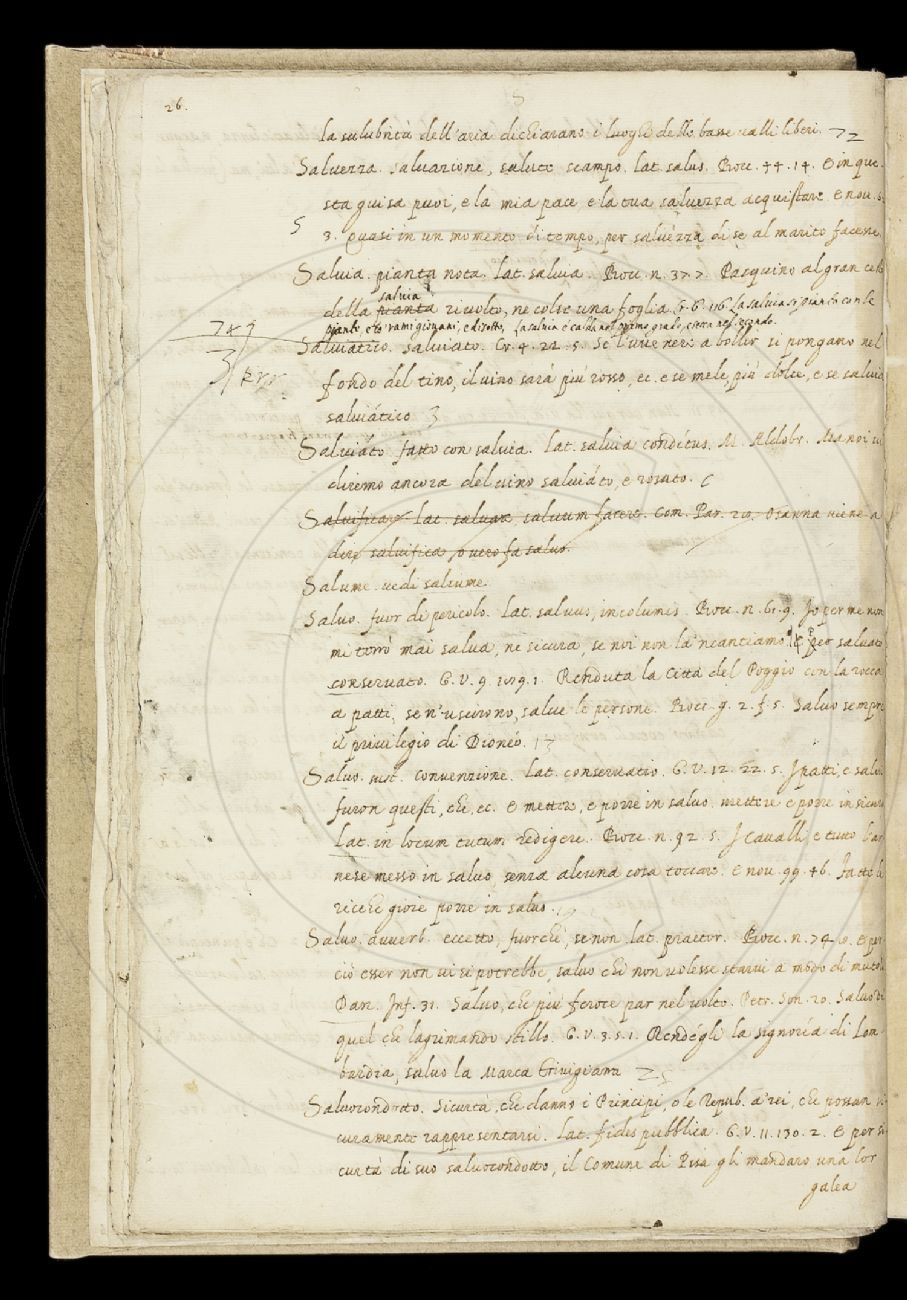 26.
la salubrità dell'aria dichiarano i luoghi delle basse valli liberi. 72
Salvezza. salvazione, salute scampo. lat. salus. Bocc. 44. 14. E in que-
sta guisa puoi, e la mia pace e la tua salvezza acquistare. e nov. 5.
5
3. quasi in un momento di tempo, per salvezza di se al marito facesse.
Salvia. pianta nota. lat. salvia. Bocc. n. 37. 7. Pasquino al gran cesto
salvia
della pianta rivolto, ne colse una foglia Cr. 6. 116. La salvia si pianta con le
piante e co rami giovani, e di sotto, La salvia è calda nel primo grado, e secca nel secondo.
749
3
Salviatico. salviato. Cr. 4. 22. 5. Se l'uve nere a bollir si pongano nel
fondo del tino, il vino sarà più rosso, ec. e se mele, più dolce, e se salvia
salviático 3
Salviáto. fatto con salvia. Lat. salvia conditus. M. Aldobr. Ma noi vi
diremo ancora del vino salviáto, e rosato. 6
Salvificare. Lat. salvare, salvum facere. Com. Par. 29. Osanna viene a
dire salvifica, o vero fa salvo.
Salume. vedi salsume.
Salvo. fuor di pericolo. Lat. salvus, incolumis. Bocc. n. 61. 9. Io per me non
mi terrò mai salva, ne sicura, se noi non la 'ncantiamo. per salvato
conservato. G. V. 9. 109. 1. Renduta la Città del Poggio con la rocca
a patti, se n'uscirono, salve le persone. Bocc. g. 2. f. 5. Salvo sempre
il privilegio di Dioneo. 13
Salvo. sust. convenzione. Lat. conservatio. G. V. 12. 22. 5. I patti, e salvi
furon questi, che, ec. E mettere, e porre in salvo. mettere e porre in sicuro
Lat. in locum tutum redigere. Bocc. n. 92. 5. I cavalli e tutto l'ar-
nese messo in salvo senza alcuna cosa toccare. e nov. 99. 46. Fatte le
ricche gioie porre in salvo. 19
Salvo. avverb. eccetto, fuorche, se non. lat. praeter. Bocc. n. 79. 10. E per
ciò esser non vi si potrebbe, salvo chi non volesse starvi a modo di mutolo
Dan. Inf. 31. Salvo, che più feroce par nel volto. Petr. Son. 20. Salvo di
quel che lagrimando stillo. G. V. 3. 5. 1. Rendégli la signoría di Lom-
bardia, salvo la Marca Trivigiana 25
Salvocondotto. Sicurtà, che danno i Principi, o le Repub. a' rei, che possan si-
curamente rappresentarsi. Lat. fides pubblica. G. V. 11. 130. 2. E per si-
curtà di suo salvocondotto, il Comune di Pisa gli mandaro una lor
galea